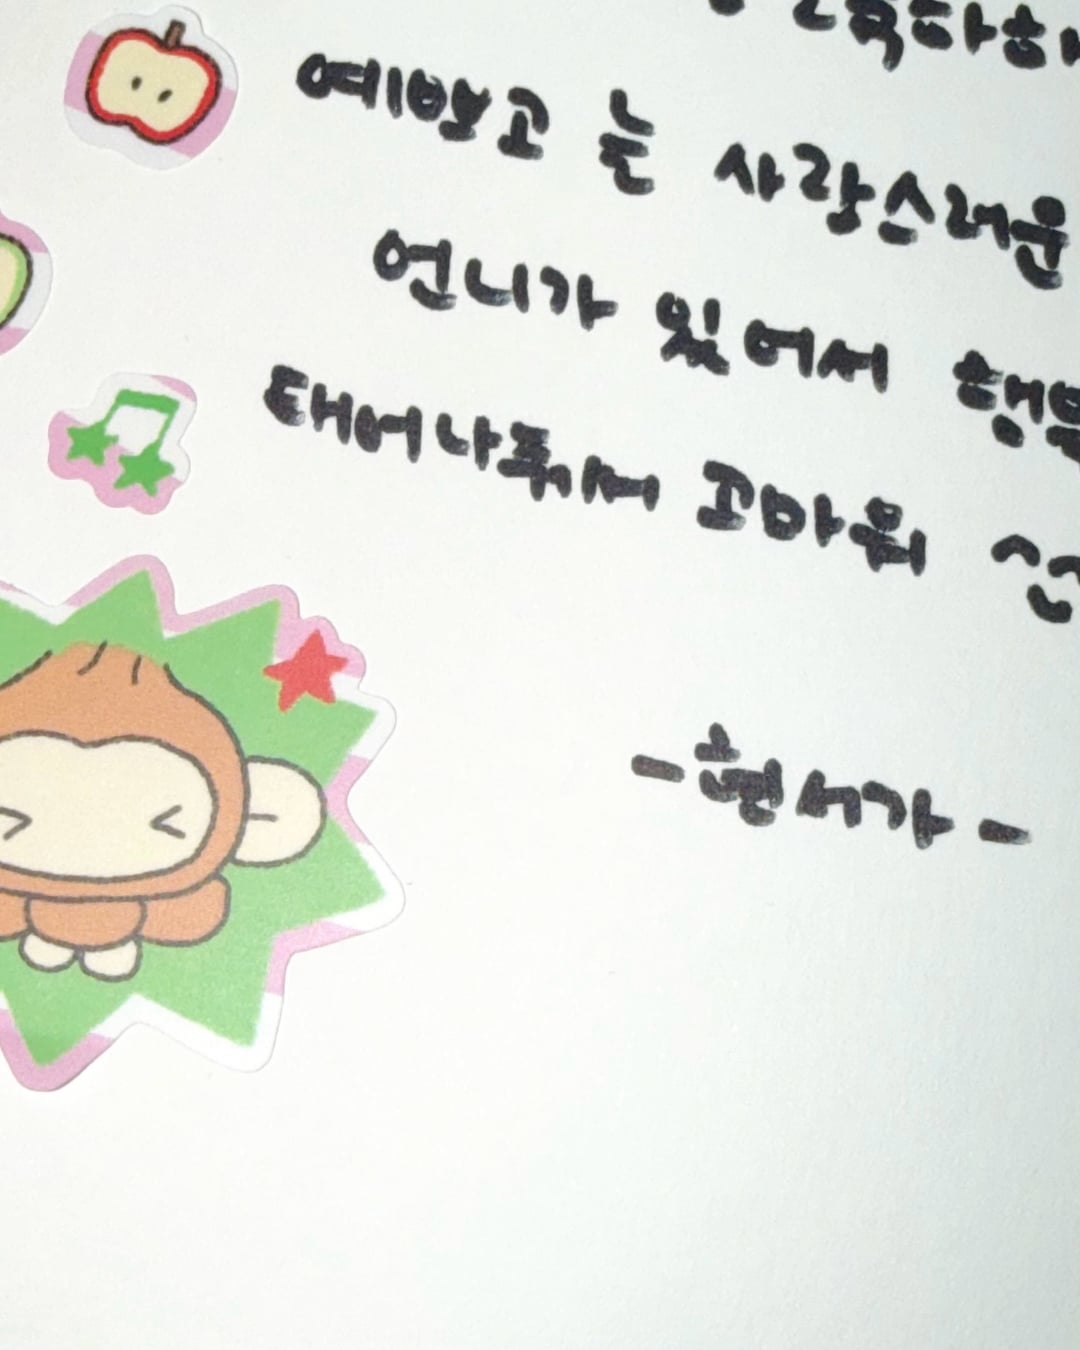 예쁘고 늘 사랑스러운
언니가 있어서 행복
태어나줘서 고마워
-현서가-